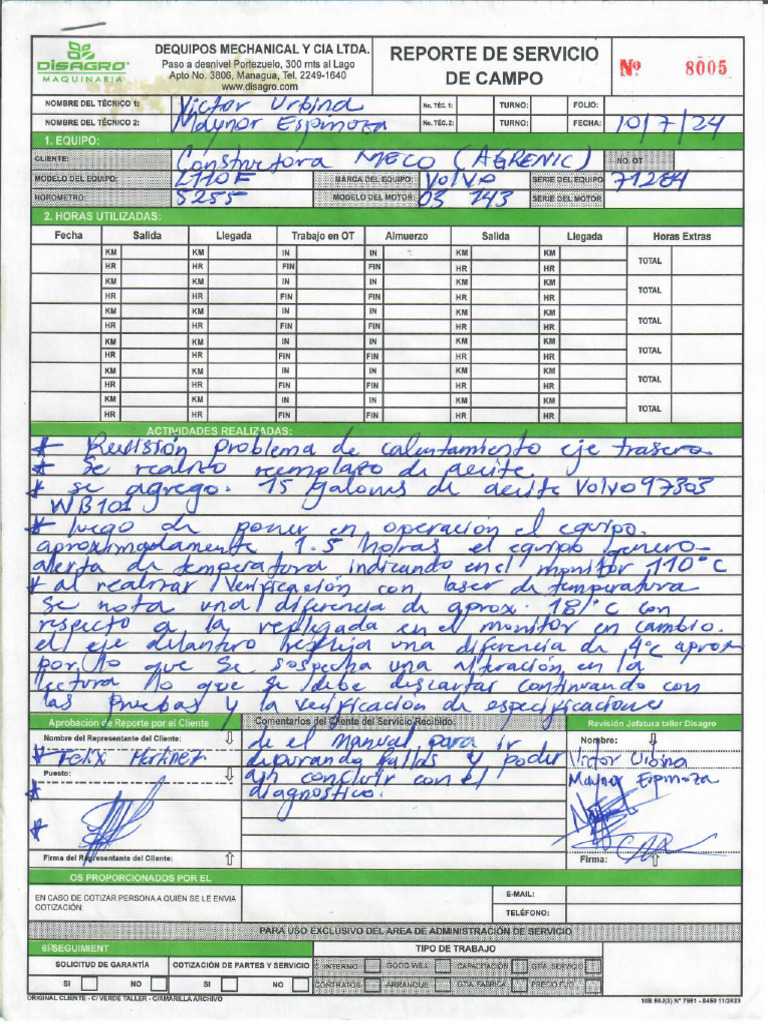 DISAGRO
MAQUINARIA
DEQUIPOS MECHANICAL Y CIA LTDA.
Paso a desnivel Portezuelo, 300 mts al Lago
Apto No. 3806, Managua, Tel. 2249-1640
www.disagro.com
REPORTE DE SERVICIO
DE CAMPO
Nº 8005
NOMBRE DEL TÉCNICO 1: Victor Urbina No. TÉC. 1: TURNO: FOLIO:
NOMBRE DEL TÉCNICO 2: Maynor Espinoza No. TÉC. 2: TURNO: FECHA: 10/7/24
1. EQUIPO:
CLIENTE: Constructora MECO (AGRENIC) NO. OT
MODELO DEL EQUIPO: L110F MARCA DEL EQUIPO: Volvo SERIE DEL EQUIPO 71284
HOROMETRO: 5255 MODELO DEL MOTOR: 03 143 SERIE DEL MOTOR
2. HORAS UTILIZADAS:
Fecha Salida Llegada Trabajo en OT Almuerzo Salida Llegada Horas Extras
KM KM IN IN KM KM TOTAL
HR HR FIN FIN HR HR
KM KM IN IN KM KM TOTAL
HR HR FIN FIN HR HR
KM KM IN IN KM KM TOTAL
HR HR FIN FIN HR HR
KM KM IN IN KM KM TOTAL
HR HR FIN FIN HR HR
KM KM IN IN KM KM TOTAL
HR HR FIN FIN HR HR
KM KM IN IN KM KM TOTAL
HR HR FIN FIN HR HR
ACTIVIDADES REALIZADAS:
* Revisión problema de calentamiento eje trasero
* Se realizo reemplazo de aceite.
* se agrego. 15 galones de aceite Volvo 97303
WB101
* luego de poner en operación el equipo.
aproximadamente 1.5 horas el equipo genero
alerta de temperatura indicando en el monitor 110°C
* al realizar verificación con laser de temperatura
Se nota una diferencia de aprox. 18°C con
respecto a la reflejada en el monitor en cambio.
el eje delantero refleja una diferencia de 4°C aprox
por lo que se sospecha una alteración en la
lectura lo que se debe descartar continuando con
las pruebas y la verificación de especificaciones
Aprobación de Reporte por el Cliente Comentarios del Cliente del Servicio Recibido: Revisión Jefatura taller Disagro
Nombre del Representante del Cliente: de el Manual para ir Nombre:
* Felix Martinez depurando fallas y poder Victor Urbina
Puesto: asi concluir con el Maynor Espinoza
* diagnostico.
*
Firma del Representante del Cliente: Firma:
OS PROPORCIONADOS POR EL
EN CASO DE COTIZAR PERSONA A QUIEN SE LE ENVIA
COTIZACIÓN:
E-MAIL:
TELÉFONO:
PARA USO EXCLUSIVO DEL AREA DE ADMINISTRACIÓN DE SERVICIO
6. SEGUIMIENT TIPO DE TRABAJO
SOLICITUD DE GARANTÍA COTIZACIÓN DE PARTES Y SERVICIO C. INTERNO GOOD WILL CAPACITACIÓN GTÍA. SERVICIO
SI NO SI NO CONTRATOS ARRANQUE GTÍA. FABRICA PRECIO FIJO
ORIGINAL CLIENTE - C/ VERDE TALLER - C/AMARILLA ARCHIVO 10B 50J(3) Nº 7951 - 8450 11/2023